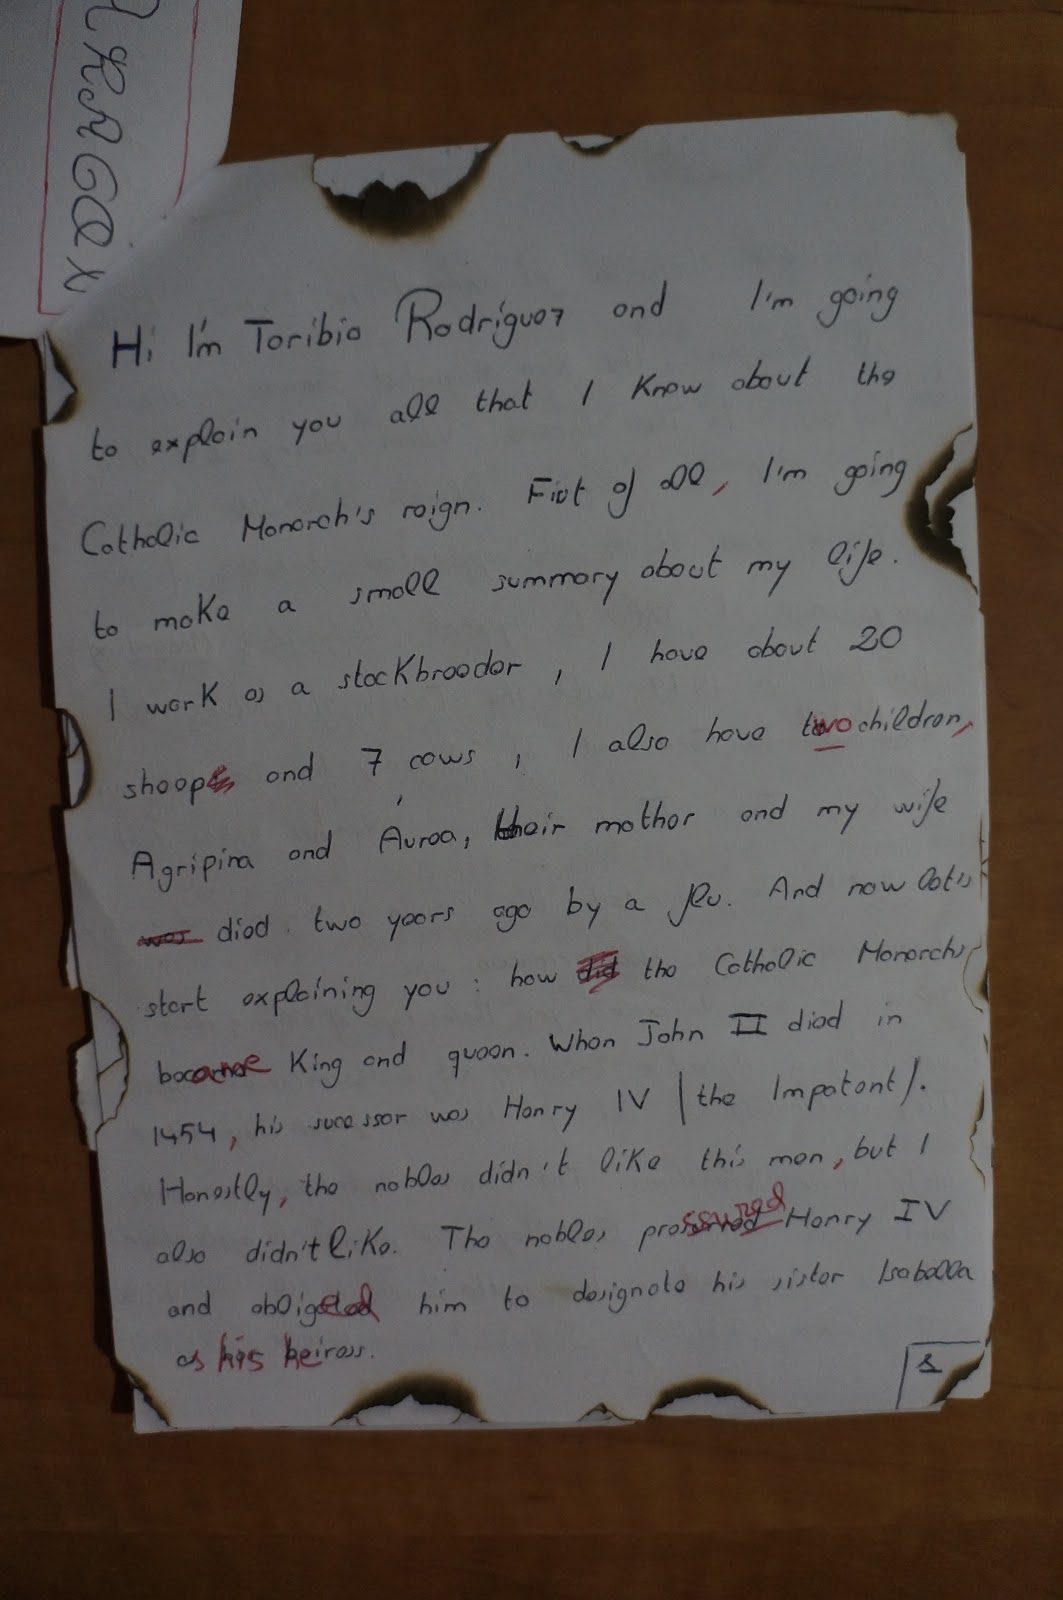 ARAGÓN
Hi I'm Toribio Rodríguez and I'm going
to explain you all that I know about the
Catholic Monarch's reign. Fist of all, I'm going
to make a small summary about my life.
I work as a stockbreeder, I have about 20
sheep and 7 cows, I also have two children,
Agripina and Áuroa, their mother and my wife
was died two years ago by a flu. And now let's
start explaining you: how did the Catholic Monarchs
became King and queen. When John II died in
1454, his sucessor was Henry IV (the Impotent).
Honestly, the nobles didn't like this man, but I
also didn't like. The nobles pressured Henry IV
and obligated him to designate his sister Isabella
as his heiress.